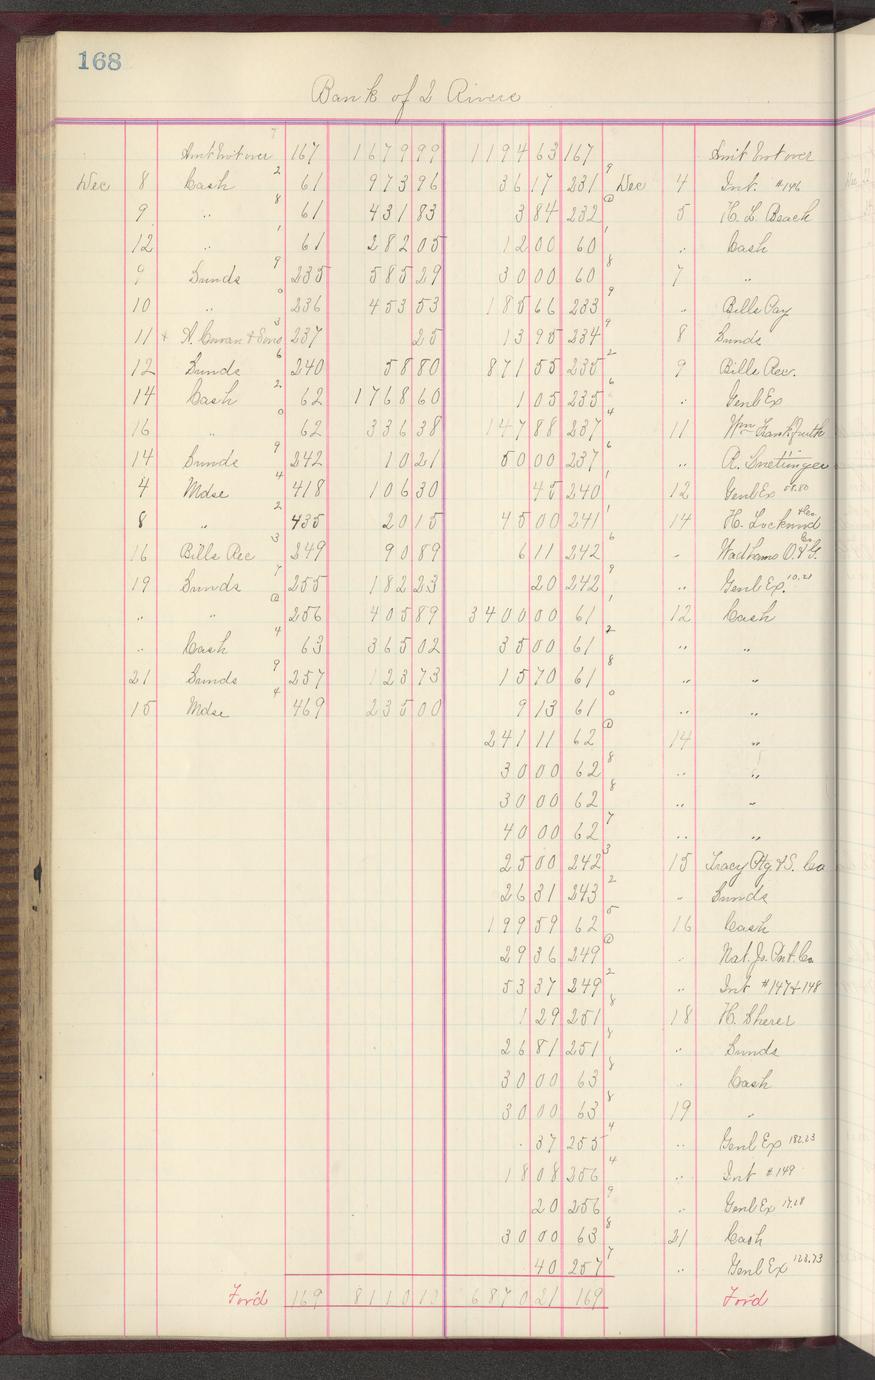 168
Bank of 2 Rivers
Amt brot over 7 167 1679 99 1194 63 167 Amt brot over
Dec 8 Cash 2 61 973 96 36 17 231 9 Dec 4 Int. #146
9 " 8 61 431 83 3 84 232 @ 5 H. L. Beach
12 " 1 61 282 05 12 00 60 1 " Cash
9 Sunds 9 235 585 29 30 00 60 8 7 "
10 " 0 236 453 53 185 66 233 9 " Bills Pay
11 + & Sons 3 237 25 13 95 234 9 8 Sunds
12 Sunds 6 240 58 80 871 55 235 2 9 Bills Rec.
14 Cash 2 62 1768 60 1 05 235 6 " Genl Ex
16 " 0 62 336 38 147 88 237 4 11 Wm Frankfurth
14 Sunds 9 242 10 21 50 00 237 6 " R.
4 Mdse 4 418 106 30 45 240 1 12 Genl Ex
8 " 2 435 20 15 45 00 241 1 14 H. Lockwood & Co.
16 Bills Rec 3 249 90 89 6 11 242 6 " Wadhams O. & G. Co
19 Sunds 7 255 182 23 20 242 9 " Genl Ex. 10.21
" " @ 256 405 89 3400 00 61 1 12 Cash
" Cash 4 63 365 02 35 00 61 2 " "
21 Sunds 9 257 123 73 15 70 61 8 " "
15 Mdse 4 469 235 00 9 13 61 0 " "
241 11 62 @ 14 "
30 00 62 8 " "
30 00 62 8 " "
40 00 62 7 " "
25 00 242 3 15 Tracy Ptg & S. Co
26 31 243 2 " Sunds
199 59 62 5 16 Cash
29 36 249 @ " Nat. Jo. Pnt. Co
53 37 249 2 " Int #147+148
1 29 251 8 18 H. Sherer
26 81 251 8 " Sunds
30 00 63 8 " Cash
30 00 63 8 19 "
37 255 4 " Genl Ex 182.23
18 08 256 4 " Int #149
20 256 9 " Genl Ex
30 00 63 8 21 Cash
40 257 7 " Genl Ex 123.73
For'd 169 8110 10 6870 21 169 For'd